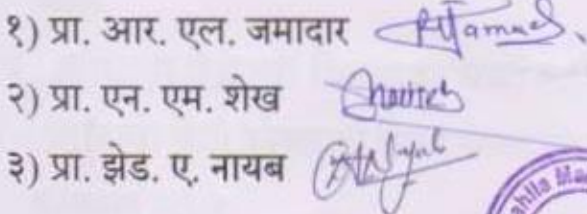 १) प्रा. आर. एल. जमादार
२) प्रा. एन. एम. शेख
३) प्रा. झेड. ए. नायब